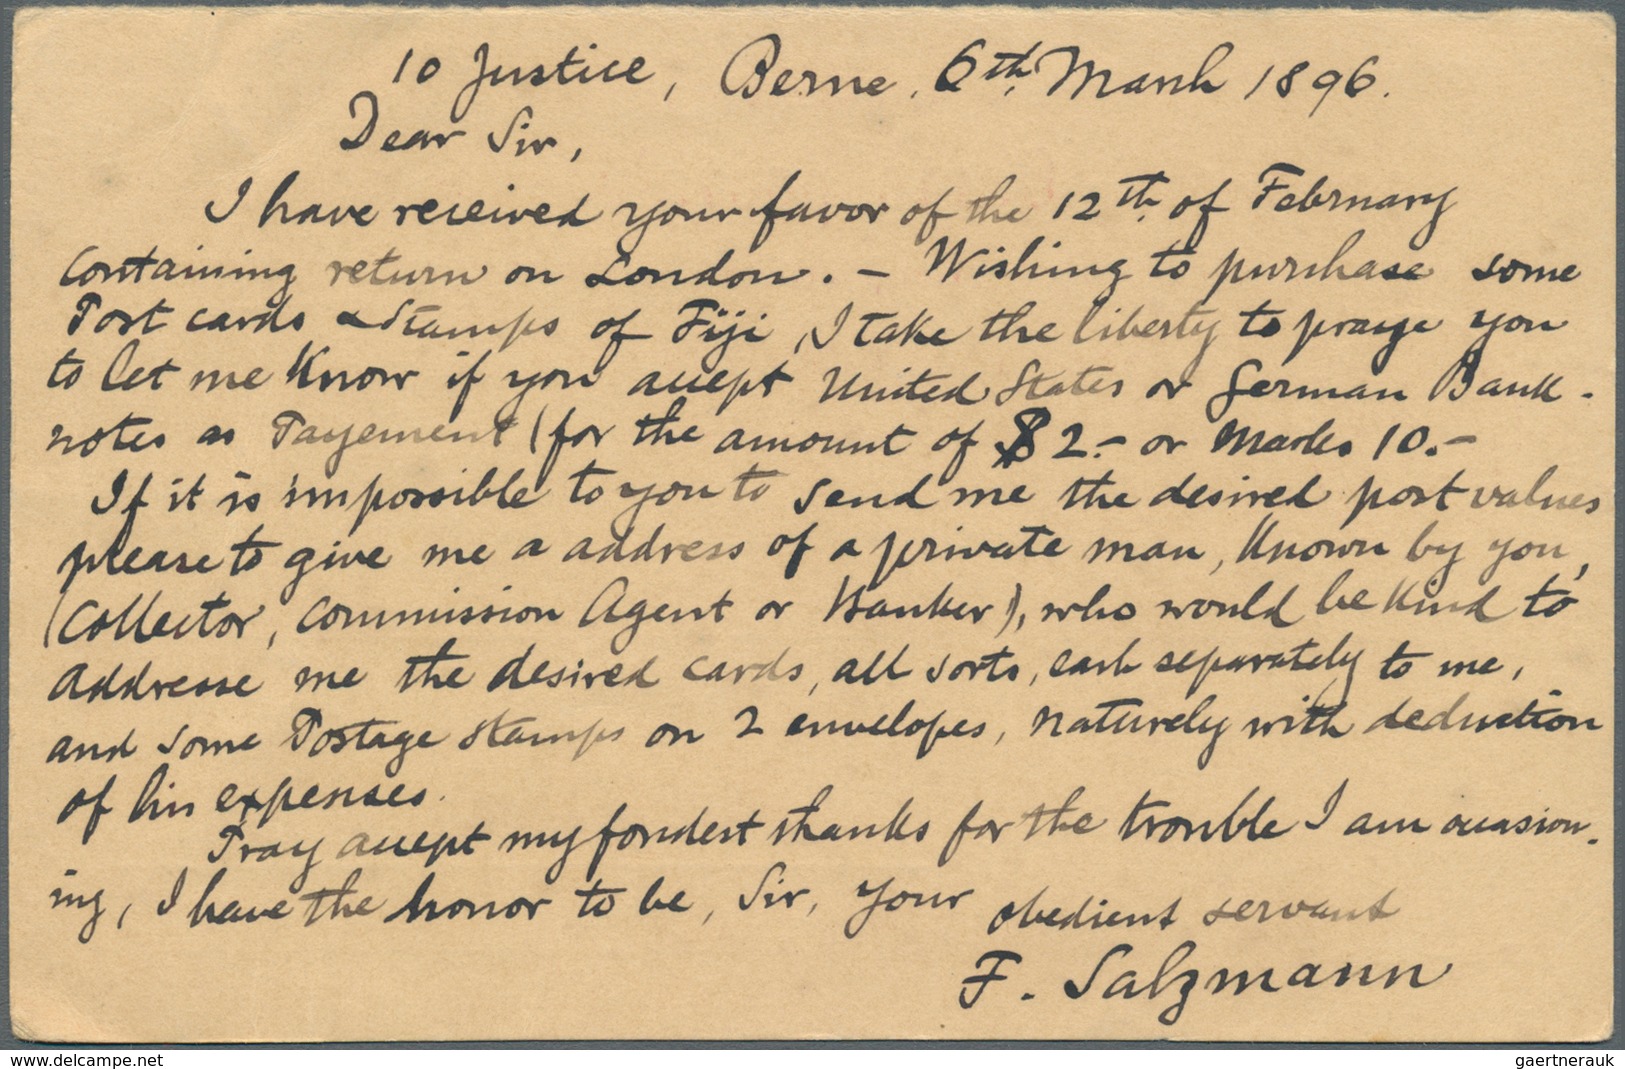 10 Justice, Berne, 6th March 1896.
Dear Sir,
I have received your favor of the 12th of February
containing return on London. – Wishing to purchase some
Post cards & Stamps of Fiji, I take the liberty to praye you
to let me know if you accept United States or German Bank-
notes as Payement (for the amount of $ 2.– or Marks 10.–
If it is impossible to you to send me the desired post values
please to give me a address of a private man, known by you,
(Collector, Commission Agent or Banker), who would be kind to
addresse me the desired cards, all sorts, each separately to me,
and some Postage stamps on 2 envelopes, naturely with deduction
of his expenses.
Pray accept my fondest thanks for the trouble I am occasion-
ing, I have the honor to be, Sir, your obedient servant
F. Salzmann
www.delcampe.net
gaertnerauk